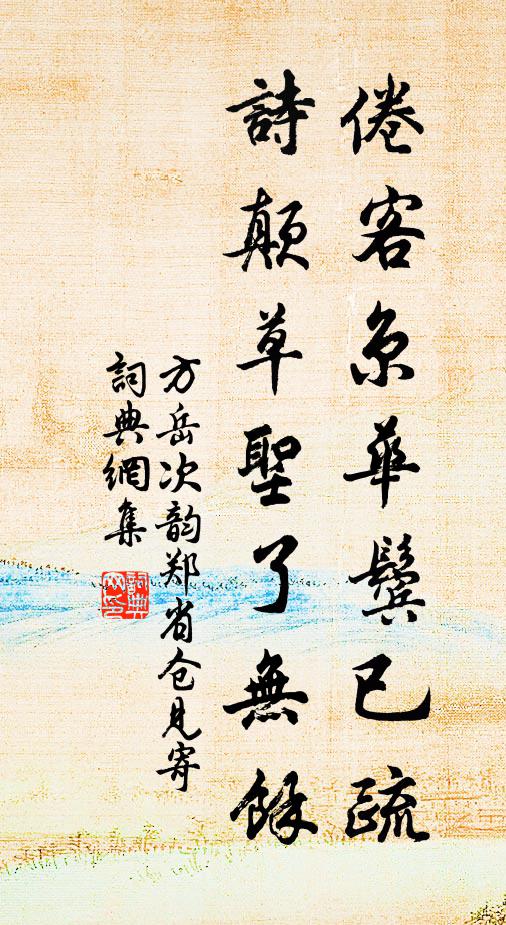 倦客京華鬢已疏
詩顛草聖了無餘
方岳次韵郑省仓见寄
詞典網集